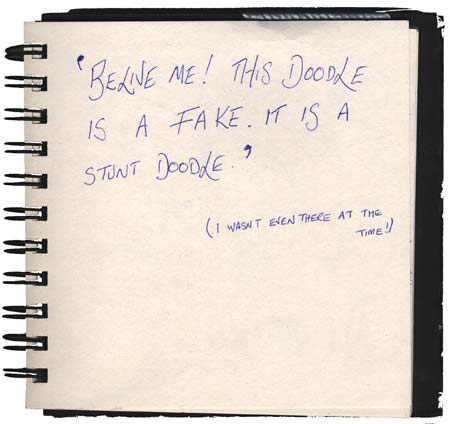 'BELIVE ME! THIS DOODLE
IS A FAKE. IT IS A
STUNT DOODLE.'
(I WASN'T EVEN THERE AT THE
TIME!)